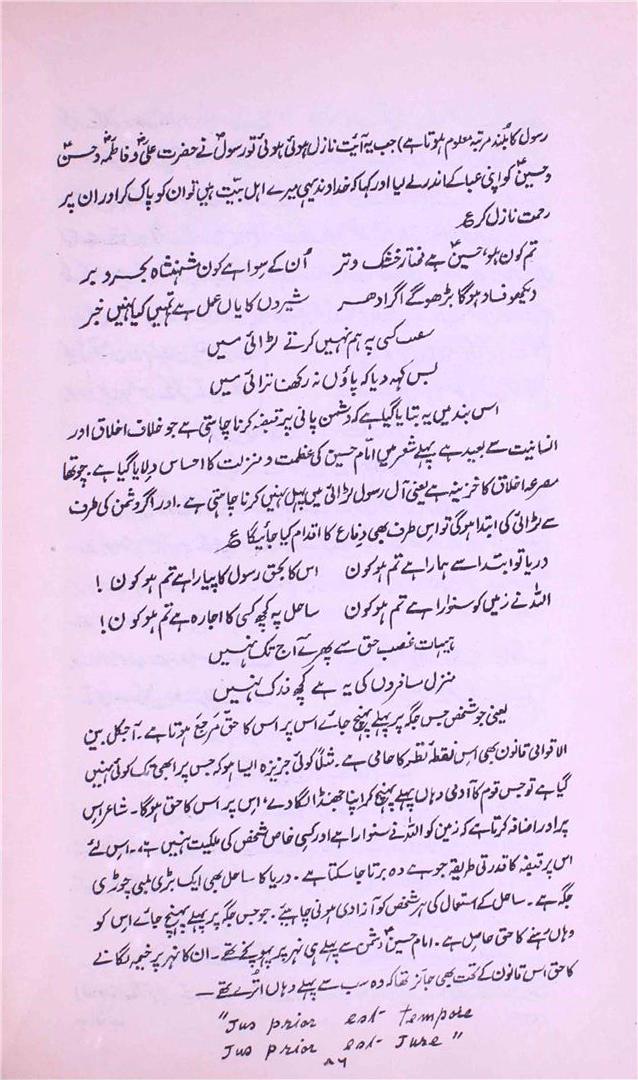 رسول کا بُلند مرتبہ معلوم ہوتا ہے) جب یہ آیت نازل ہوئی ہوئی تو رسولؐ نے حضرت علیؓ و فاطمہؓ و حسنؑ
و حسینؑ کو اپنی عبا کے اندر لے لیا اور کہا کہ خداوند یہی میرے اہل بیت ہیں تو ان کو پاک کر اور ان پر
رحمت نازل کر ؏
تم کون ہو، حسینؑ ہے مختار خشک و تر اُن کے سوا ہے کون شہنشاہ بحر و بر
دیکھو فساد ہوگا بڑھو گے اگر ادھر شیروں کا یاں عمل ہے تمہیں کیا نہیں خبر
سبقت کسی پہ ہم نہیں کرتے لڑائی میں
بس کہہ دیا کہ پاؤں نہ رکھنا ترائی میں
اس بند میں یہ بتایا گیا ہے کہ دشمن پانی پر قبضہ کرنا چاہتی ہے جو خلاف اخلاق اور
انسانیت سے بعید ہے پہلے شعر میں امام حسین کی عظمت و منزلت کا احساس دلایا گیا ہے۔ چوتھا
مصرعہ اخلاق کا خزینہ ہے یعنی آل رسول لڑائی میں پہل نہیں کرنا چاہتی ہے۔ اور اگر دشمن کی طرف
سے لڑائی کی ابتدا ہوگی تو اس طرف بھی دفاع کا اقدام کیا جائیگا ؏
دریا تو ابتدا سے ہمارا ہے تم ہو کون اس کا بحق رسول کا پیارا ہے تم ہو کون!
اللہ نے زمیں کو سنوارا ہے تم ہو کون ساحل پہ کچھ کسی کا اجارہ ہے تم ہو کون!
ہیہات غصب حق سے پھرے آج تک نہیں
منزل مسافروں کی یہ ہے کچھ فدک نہیں
یعنی جو شخص جس جگہ پر پہلے پہنچ جائے اس پر اس کا حق مرجع ہوتا ہے۔ آجکل بین
الاقوامی قانون بھی اس نقطۂ نظر کا حامی ہے۔ مثلاً کوئی جزیرہ ایسا ہو کہ جس پر ابھی تک کوئی نہیں
گیا ہے تو جس قوم کا آدمی وہاں پہلے پہنچ کر اپنا جھنڈا لگا دے، اس پر اس کا حق ہوگا۔ شاعر اس
پر اور اضافہ کرتا ہے کہ زمین کو اللہ نے سنوارا ہے اور کسی خاص شخص کی ملکیت نہیں ہے، اس لئے
اس پر قبضہ کا قدرتی طریقہ جو ہے وہ برتا جا سکتا ہے۔ دریا کا ساحل بھی ایک بڑی لمبی چوڑی
جگہ ہے۔ ساحل کے استعمال کی ہر شخص کو آزادی ہونی چاہئے۔ جو جس جگہ پر پہلے پہنچ جائے اس کو
وہاں رہنے کا حق حاصل ہے۔ امام حسینؑ دشمن سے پہلے ہی نہر پر پہونچے تھے۔ ان کا نہر پر خیمہ لگانے
کا حق اس قانون کے تحت بھی جائز تھا کہ وہ سب سے پہلے وہاں اُترے تھے۔
"Jus prior est tempore
Jus prior est Jure"
۸۶